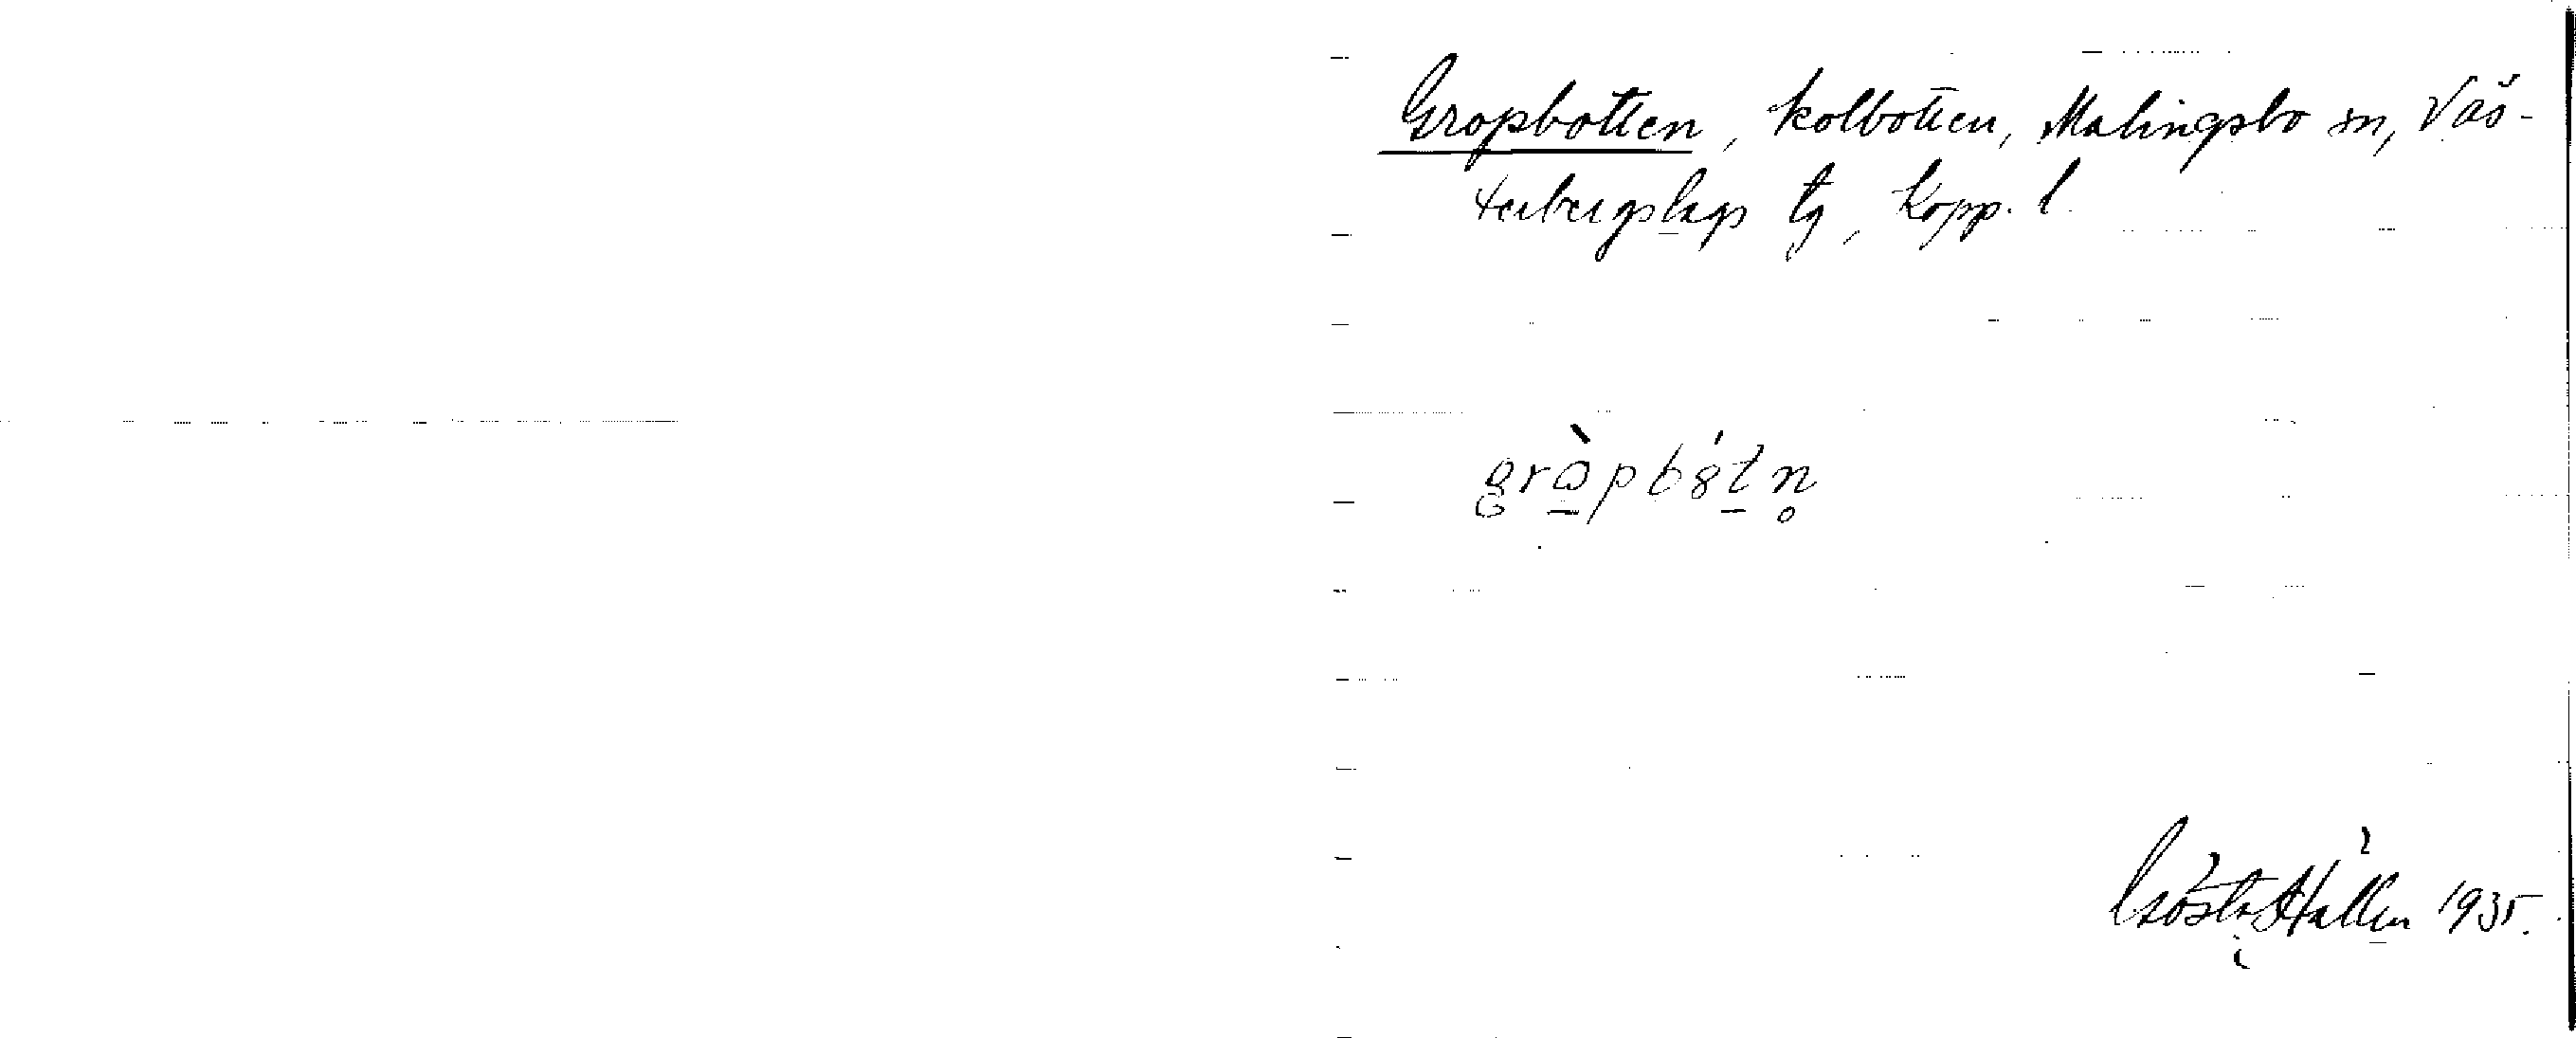 Gropbotten, kolbotten, Malingsbo sn, Väs-
terbergslags tg, Kopp. l.
grὼpbȣ́tn̥
Gösta Hallén 1935.